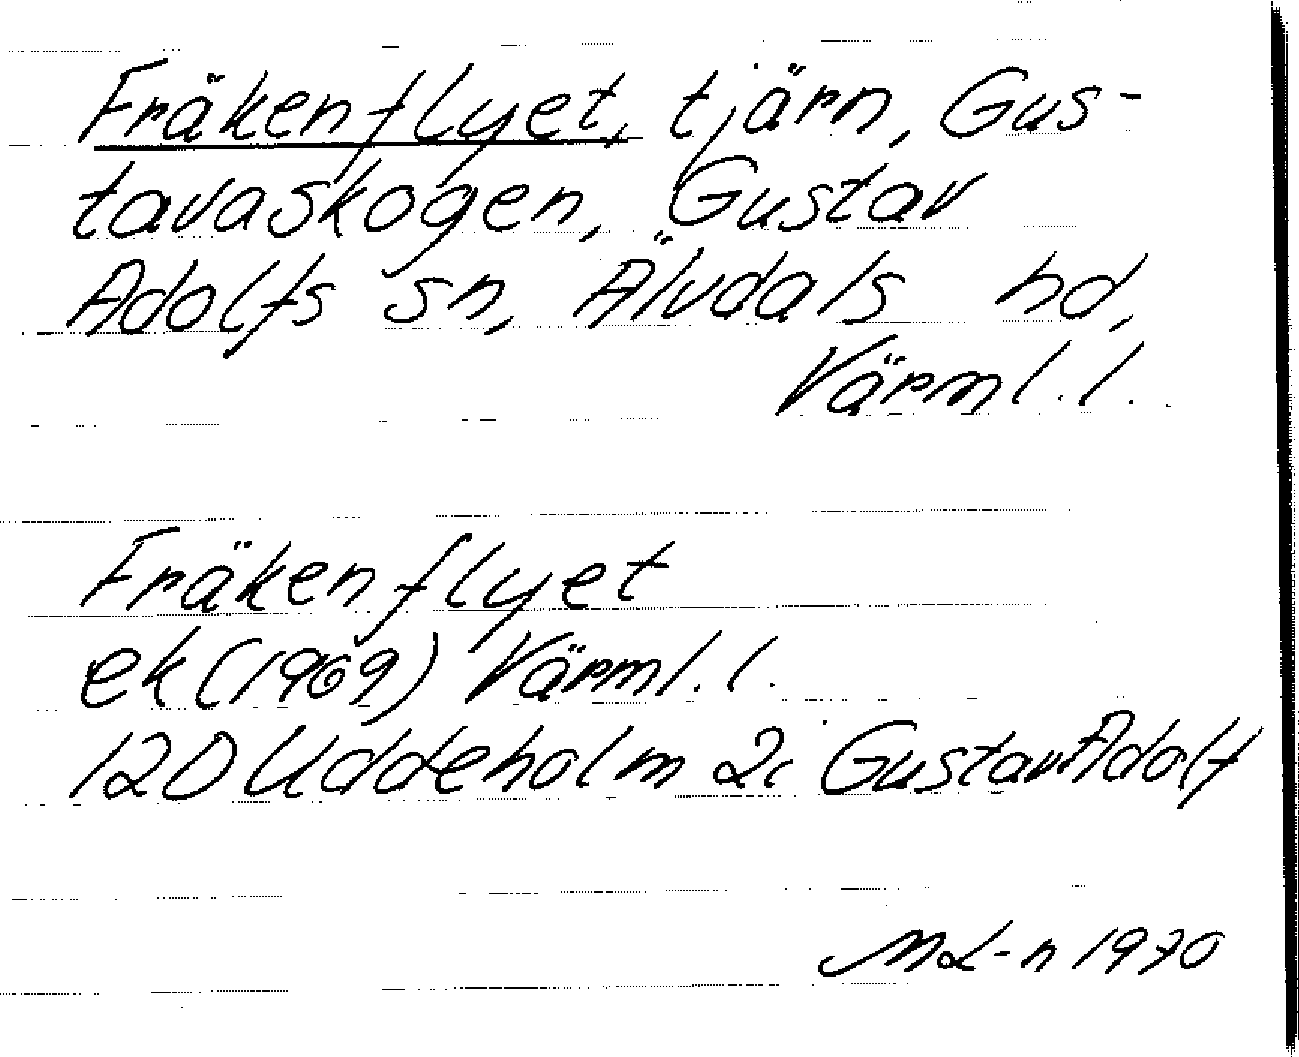 Fräkenflyet, tjärn, Gus-
tavaskogen, Gustav
Adolfs sn, Älvdals hd,
Värml. l.
Fräkenflyet
ek (1969) Värml. l.
12D Uddeholm 2c Gustav Adolf
ML-n 1970